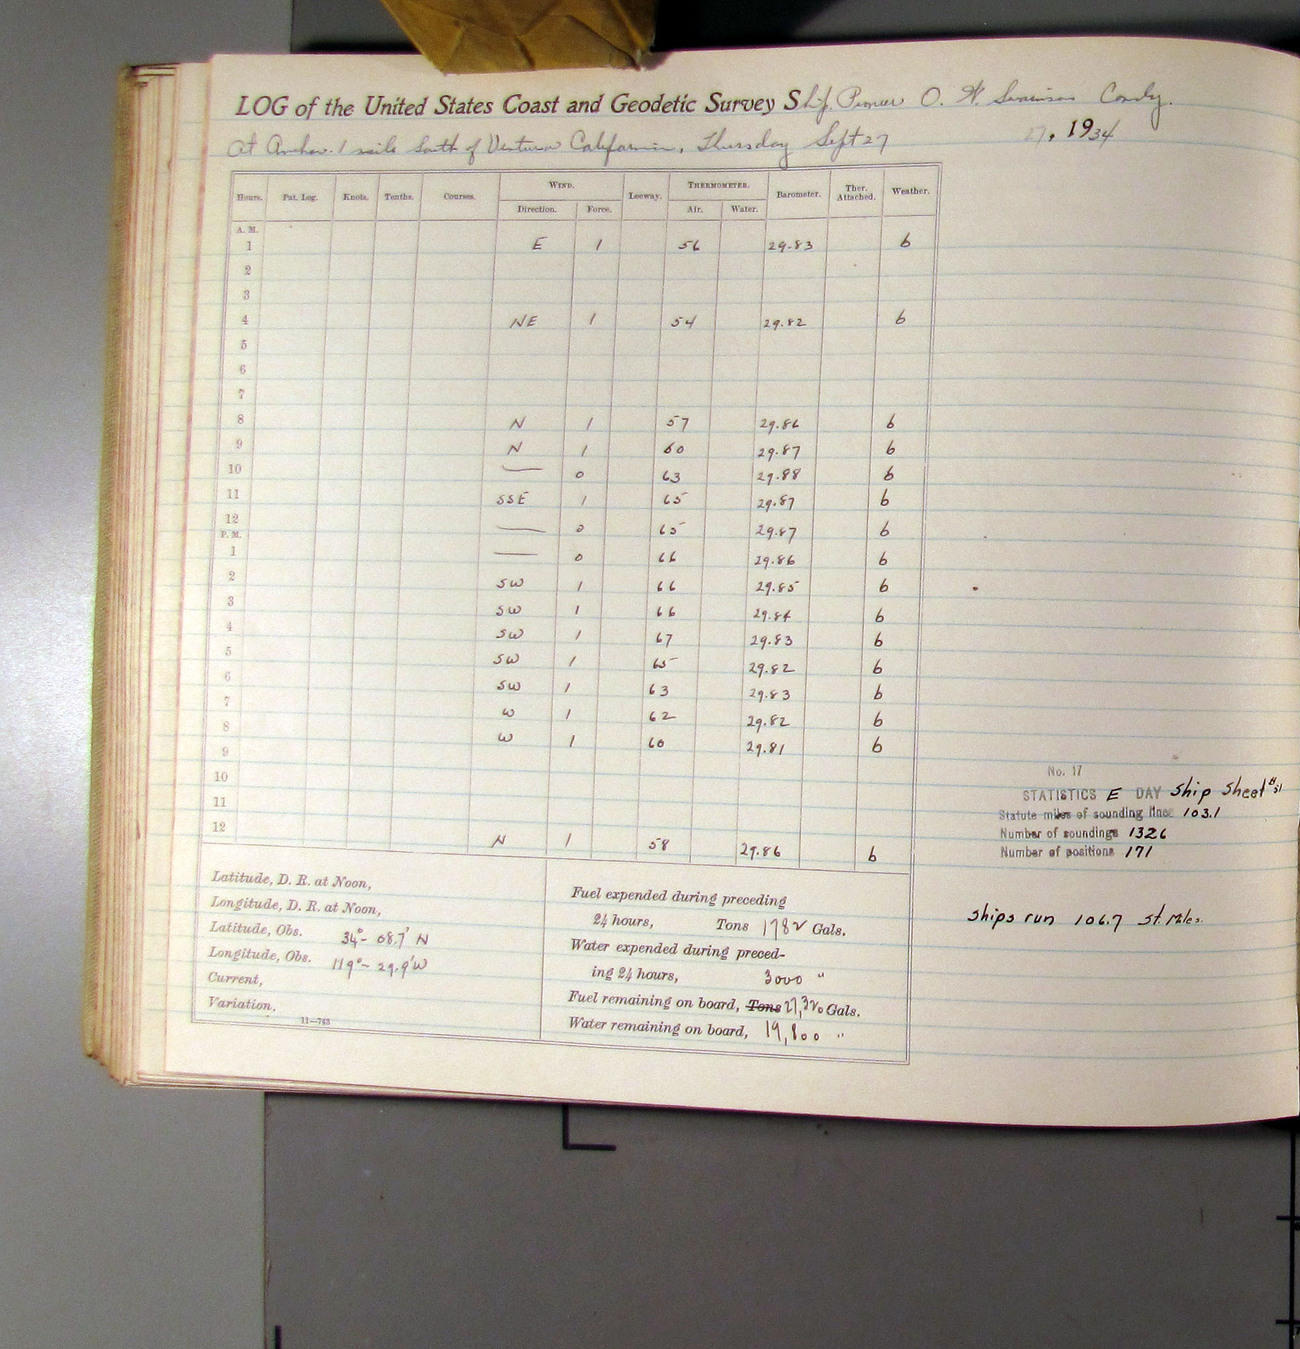 LOG of the United States Coast and Geodetic Survey Ship Pioneer O. W. Swainson Comdg.
at Anchor. 1 mile South of Ventura California, Thursday Sept 27 27, 1934
Hours. Pat. Log. Knots. Tenths. Courses. WIND. Leeway. THERMOMETER. Barometer. Ther. Attached. Weather.
Direction. Force. Air. Water.
A. M.
1 E 1 56 29.83 b
2
3
4 NE 1 54 29.82 b
5
6
7
8 N 1 57 29.86 b
9 N 1 60 29.87 b
10 — 0 63 29.88 b
11 SSE 1 65 29.87 b
12 — 0 65 29.87 b
P. M.
1 — 0 66 29.86 b
2 SW 1 66 29.85 b
3 SW 1 66 29.84 b
4 SW 1 67 29.83 b
5 SW 1 65 29.82 b
6 SW 1 63 29.83 b
7 W 1 62 29.82 b
8 W 1 60 29.81 b
9
10
11
12 N 1 58 29.86 b
No. 17
STATISTICS E DAY Ship Sheet #51
Statute miles of sounding line 103.1
Number of soundings 1326
Number of positions 171
Ships run 106.7 St. Miles.
Latitude, D. R. at Noon,
Longitude, D. R. at Noon,
Latitude, Obs. 34°- 08.7' N
Longitude, Obs. 119°- 29.9' W
Current,
Variation.
11—763
Fuel expended during preceding
24 hours, Tons 1782 Gals.
Water expended during preced-
ing 24 hours, 3000 "
Fuel remaining on board, Tons 27,320 Gals.
Water remaining on board, 19,800 "